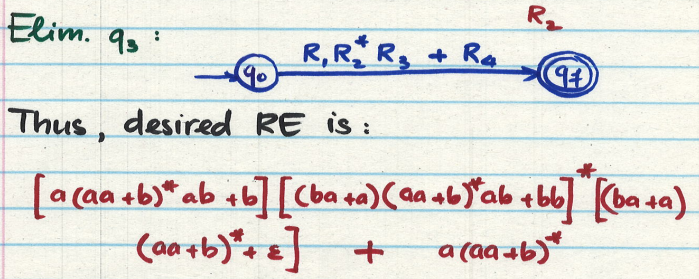 R₂
Elim. q₃ :
R₁R₂* R₃ + R₄
q₀ q₇
Thus, desired RE is :
[a(aa+b)* ab + b] [(ba+a)(aa+b)*ab + bb]* [(ba+a)
(aa+b)* + ε] + a(aa+b)*